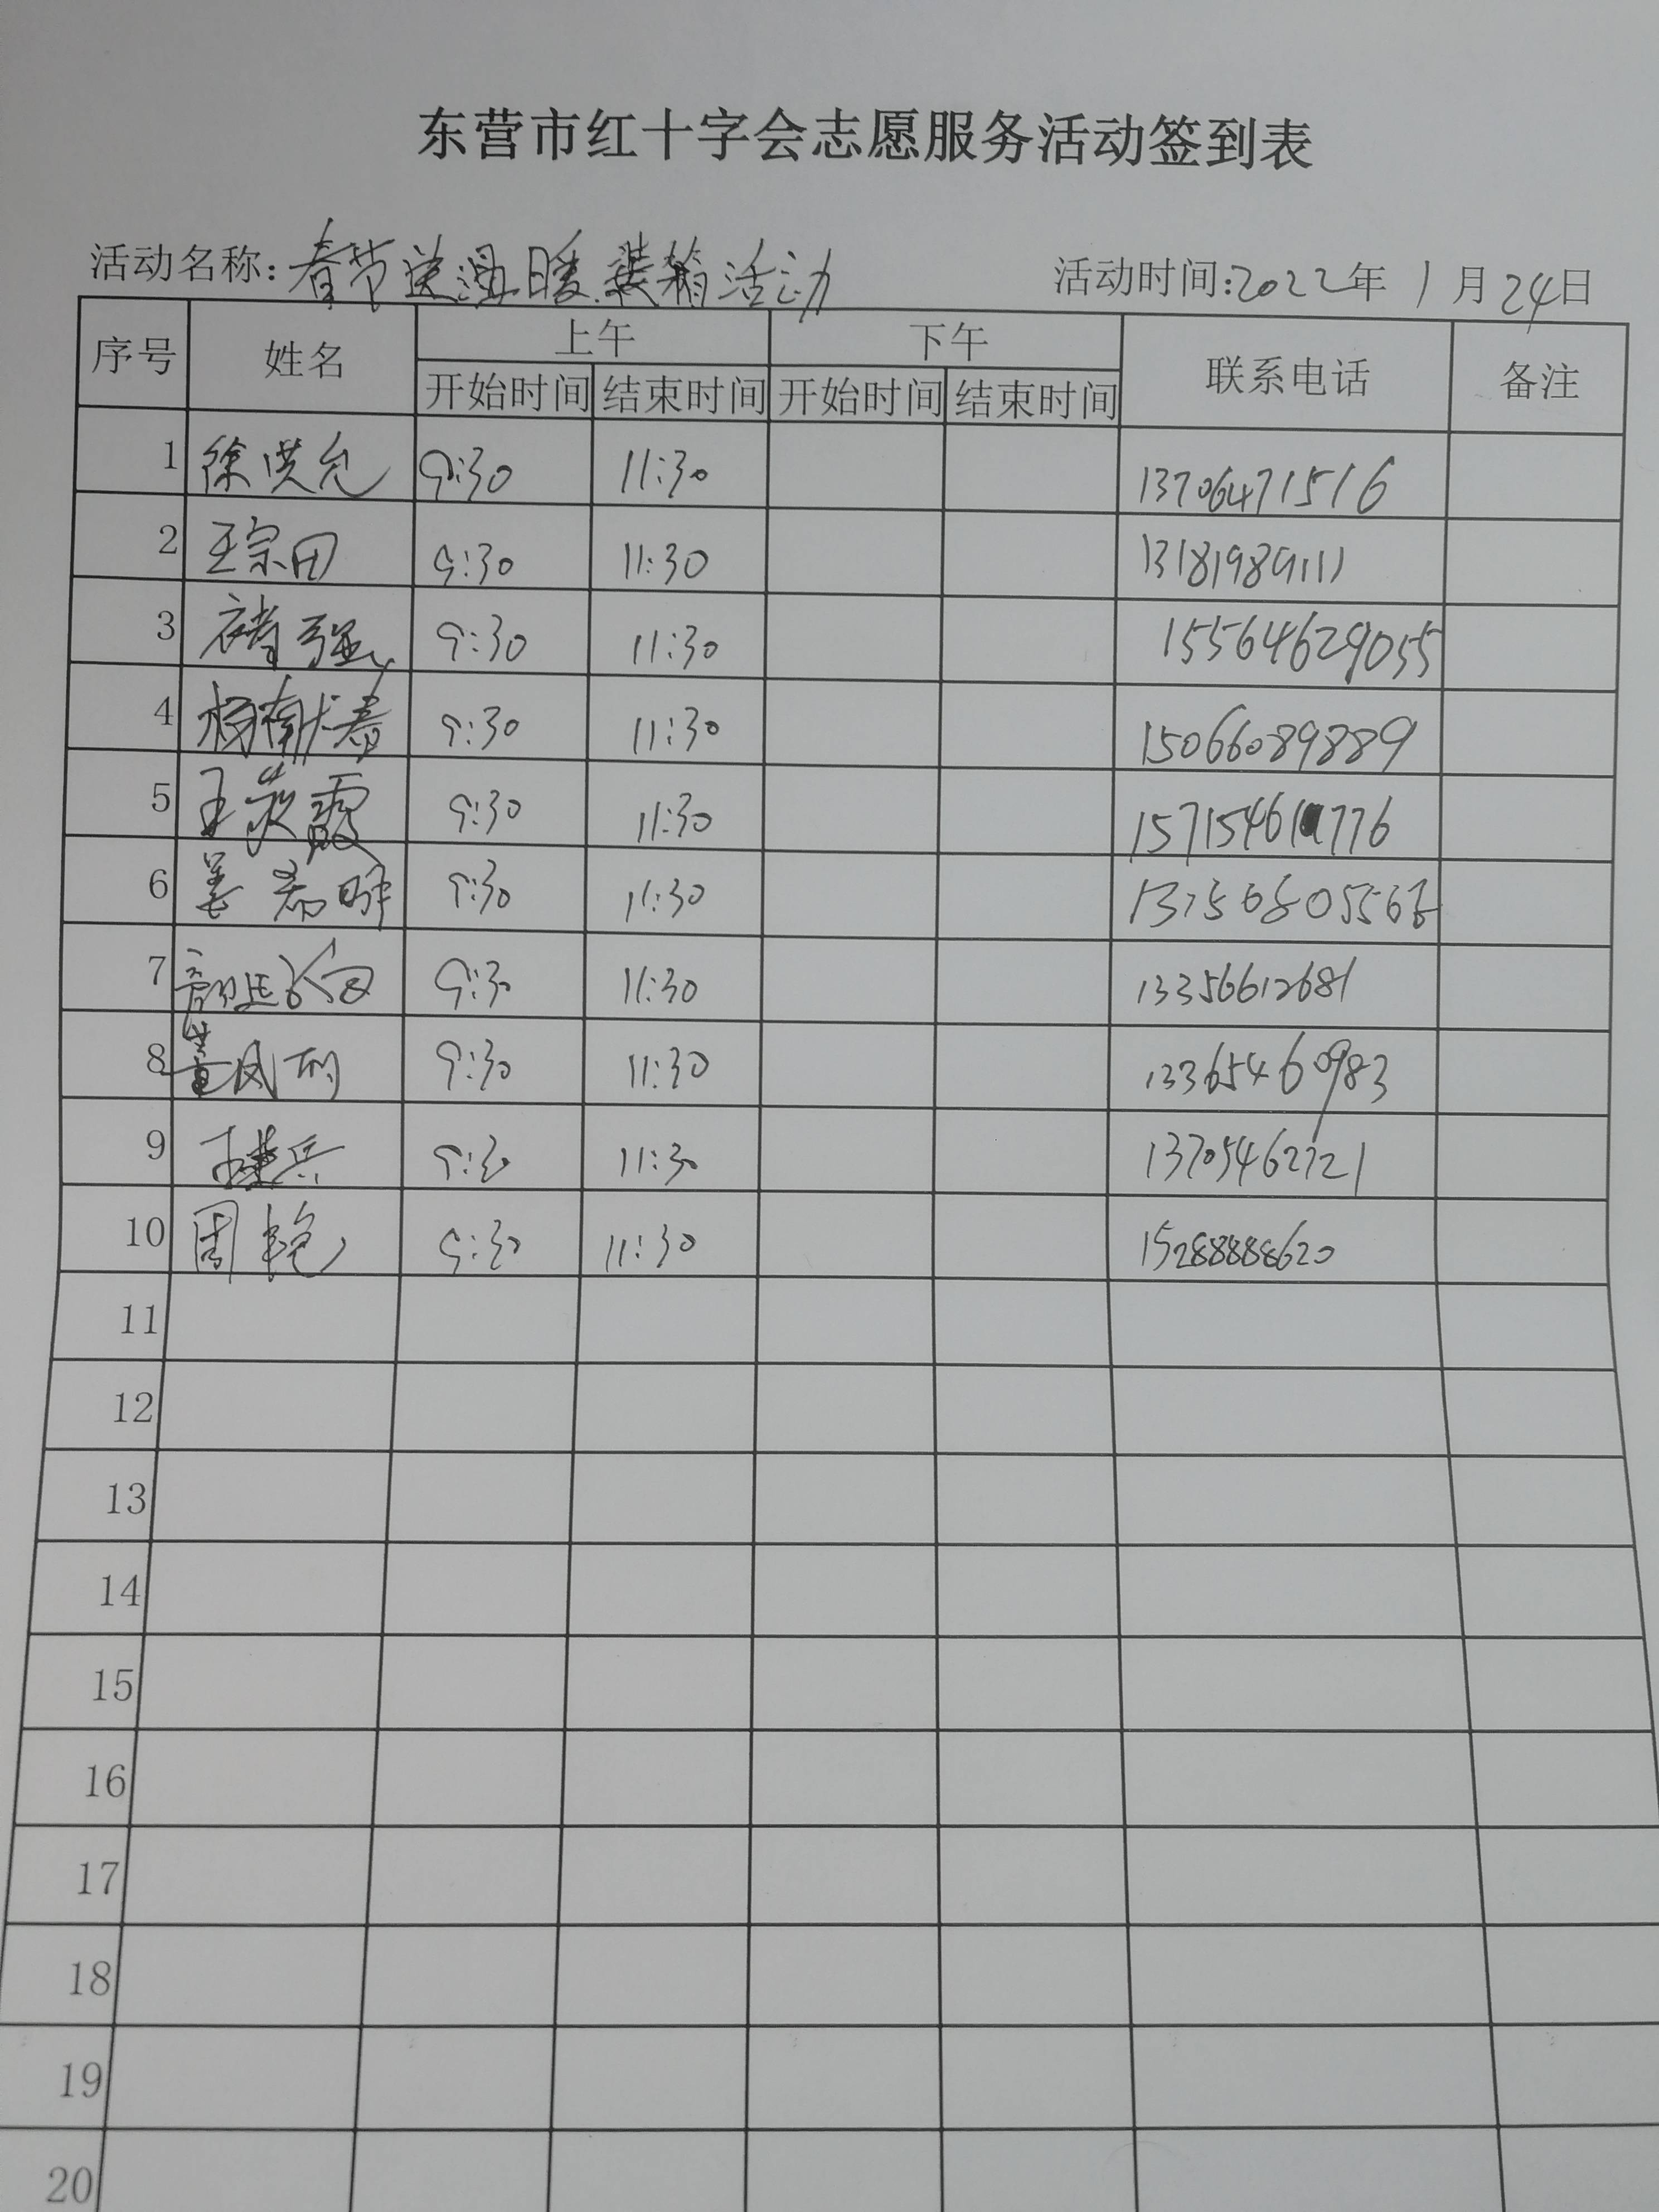 东营市红十字会志愿服务活动签到表
活动名称:春节送温暖装箱活动 活动时间:2022年1月24日
序号 姓名 上午 下午 联系电话 备注
开始时间 结束时间 开始时间 结束时间
1 徐洪允 9:30 11:30 13706471516
2 王宗田 9:30 11:30 13181989111
3 褚强 9:30 11:30 15564629055
4 杨献春 9:30 11:30 15066089889
5 王 霞 9:30 11:30
6 姜 9:30 11:30
7 9:30 11:30 13356612681
8 董凤 9:30 11:30 13365460983
9 王建兵 9:30 11:30 13705462721
10 周艳 9:30 11:30 15288888620
11
12
13
14
15
16
17
18
19
20